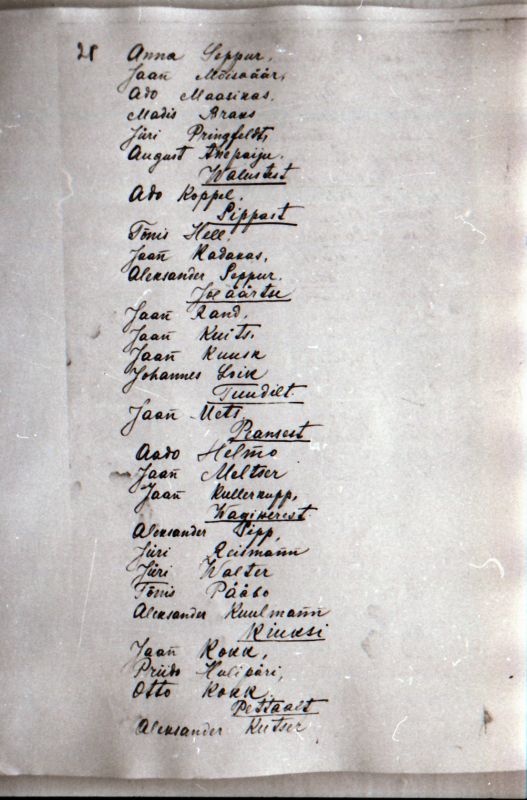 28 Anna Seppur,
Jaan̄ Mõisaäär,
Ado Maasikas.
Madis Braks
Jüri Pringfeldt,
August Anepaiju.
Walustest
Ado Koppel.
Sippast
Tõnis Hell.
Jaan̄ Kadakas,
Aleksander Seppur.
Jõeäärtse
Jaan̄ Rand.
Jaan̄ Kuits.
Jaan̄ Kuusk
Johannes Loik
Tuudilt.
Jaan̄ Mets,
Ransest
Aado Helmo
Jaan̄ Meltser
Jaan̄ Kullerkupp,
Wagikerest
Aleksander Sipp,
Jüri Reisman̄n
Jüri Walter
Tõnis Pääbo
Aleksander Kuulman̄n
Kiuksi
Jaan̄ Kokk,
Priido Halipäri,
Otto Kokk.
Pettaalt
Aleksander Kutser